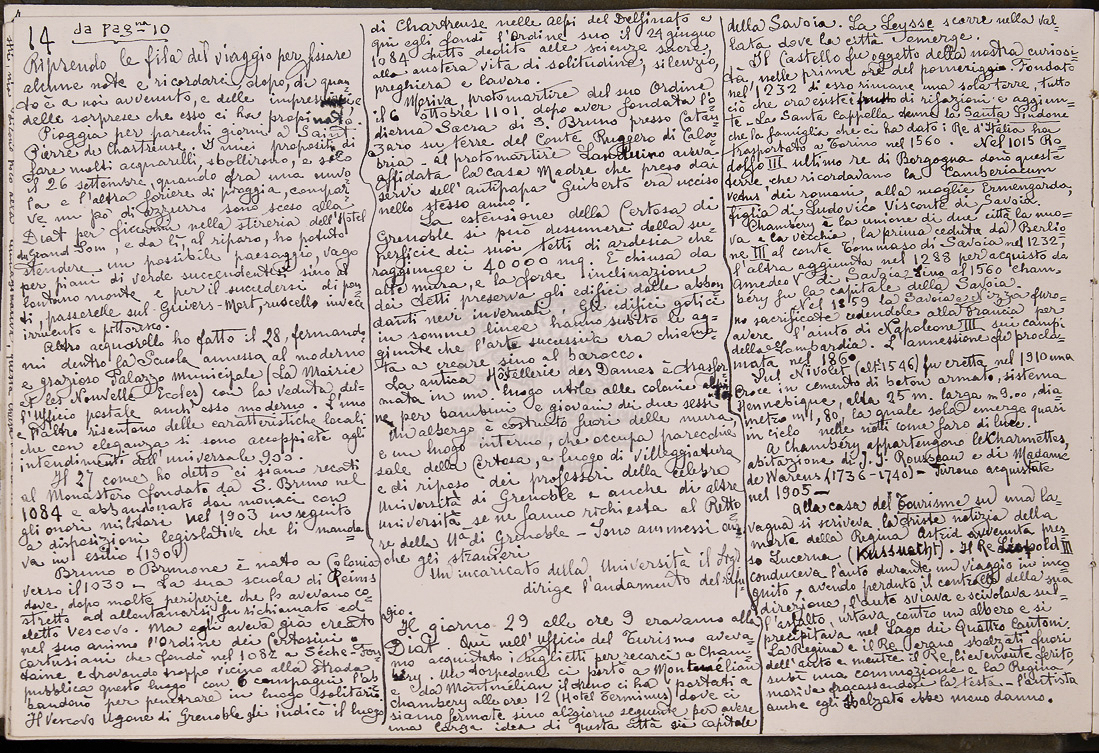 14 da Pag=na 10
Riprendo le fila del viaggio per fissare
alcune note e ricordarci, dopo, di quan=
to è a noi avvenuto, e delle impressioni e
delle sorprese che esso ci ha propinato
Pioggia per parecchi giorni a Saint
Pierre de Chartreuse. I miei propositi di
fare molti acquarelli sbollirono, e solo
il 26 settembre, quando fra una nuvo
la e l'altra foriere di pioggia, compari
va un po' di azzurro sono sceso alla
Diat per ficcarmi nella stireria dell'Hotel
du Grand Som, e da lì, al riparo, ho potuto
stendere un possibile paesaggio, vago
per piani di verde succedentisi sino al
lontano monte e per il succedersi di pon
ti, passerelle sul Guiers-Mort, ruscello invece
irruento e pittoresco.
Altro acquarello ho fatto il 28, fermando
mi dentro la Scuola annessa al moderno
e grazioso Palazzo Municipale (La Mairie
et les Nouvelles Ecoles) con la veduta del=
l'ufficio postale anch'esso moderno. L'uno
e l'altro risentono delle caratteristiche locali
che con eleganza si sono accoppiate agli
intendimenti dell'universale 900.
Il 27 come ho detto ci siamo recati
al Monastero fondato da S. Bruno nel
1084 e abbandonato dai monaci con
gli onori militari nel 1903 in seguito
a disposizioni legislative che li manda
va in esilio (1901)
Bruno o Brunone è nato a Colonia
verso il 1030 - La sua scuola di Reims
dove, dopo molte peripezie che lo avevano co=
stretto ad allontanarsi, fu richiamato ed
eletto Vescovo. Ma egli aveva già creato
nel suo animo l'Ordine dei Certosini o
Cartusiani che fondò nel 1082 a Sèche-Fon
taine e trovando troppo vicino alla strada
pubblica questo luogo con 6 compagni l'ab
bandonò per penetrare in luogo solitario.
Il Vescovo Ugone di Grenoble gli indicò il luogo
di Chartreuse nelle alpi del Delfinato e
qui egli fondò l'Ordine suo il 24 giugno
1084 tutto dedito alle scienze sacre,
alla austera vita di solitudine, silenzio,
preghiera e lavoro.
Moriva, protomartire del suo Ordine
il 6 ottobre 1101. dopo aver fondata l'o
dierna Sacra di S. Bruno presso Catan
zaro su terre del Conte Ruggero di Cala
bria - al protomartire Landuino aveva
affidata la casa Madre che preso dai
servi dell'antipapa Guiberto era ucciso
nello stesso anno.
La estensione della Certosa di
Grenoble si può desumere della su=
perficie dei suoi tetti di ardesia che
raggiunge i 40000 mq. È chiusa da
alte mura, e la forte inclinazione
dei tetti preserva gli edifici dalle abbon
danti nevi invernali. Gli edifici gotici
in somme linee hanno subito le ag=
giunte che l'arte successiva era chiama
ta a creare sino al barocco.
La antica Hôtellerie des Dames è trasfor
mata in un luogo utile alle colonie alpi
ne per bambini e giovani dei due sessi
Un albergo è costruito fuori delle mura
e un luogo interno, che occupa parecchie
sale della Certosa, a luogo di villeggiatura
e di riposo dei professori della celebre
Università di Grenoble e anche di altre
università - se ne fanno richiesta al Retto
re della U.à di Grenoble - Sono ammessi an=
che gli stranieri
Un incaricato della Università il Sig.
dirige l'andamento del rifu
gio.
Il giorno 29 alle ore 9 eravamo alla
Diat Qui nell'ufficio del Turismo aveva=
mo acquistato i biglietti per recarci a Cham
béry. Un torpedone ci portò a Montmélian
e da Montmélian il treno ci ha portati a
Chambery alle ore 12 (Hotel Terminus) dove ci
siamo fermati sino al giorno seguente per avere
una larga idea di questa città già capitale
della Savoia. La Leysse scorre nella val
lata dove la città emerge.
Il Castello fu oggetto della nostra curiosi
tà, nelle prime ore del pomeriggio. Fondato
nel 1232 di esso rimane una sola torre, tutto
ciò che ora esiste è frutto di rifazioni e aggiun=
te - La Santa Cappella tenne la Santa Sindone
che la famiglia che ci ha dato i Re d'Italia ha
trasportato a Torino nel 1560. Nel 1015 Ro
dolfo III ultimo re di Borgogna donò queste
terre, che ricordavano la Camberiacum
vetus dei romani, alla moglie Ermengarda,
figlia di Ludovico Visconte di Savoia.
Chambery è la unione di due città la nuo=
va e la vecchia, la prima ceduta da Berlio
ne III al conte Tommaso di Savoia nel 1232,
l'altra aggiunta nel 1288 per acquisto da
Amedeo V di Savoia. Sino al 1560 Cham=
béry fu la capitale della Savoia.
Nel 1859 la Savoia e Nizza furo=
no sacrificate cedendole alla Francia per
avere l'aiuto di Napoleone III sui campi
della Lombardia. L'annessione fu procla=
mata nel 1860
Sul Nivolet (alt. 1546) fu eretta nel 1910 una
croce in cemento di beton armato, sistema
Hennebique, alta 25 m. larga m 9.00, dia=
metro m 1,80, la quale sola emerge quasi
in cielo nelle notti come faro di luce.
A Chambéry appartengono le Charmettes,
abitazione di J.J. Rousseau e di Madame
de Warens (1736-1740) - Furono acquistate
nel 1905 -
Alla casa del Tourisme su una la=
vagna si scriveva la triste notizia della
morte della Regina Astrid avvenuta pres
so Lucerna (Kussnacht). Il Re Leopold III
conduceva l'auto durante un viaggio in inco
gnito e, avendo perduto il controllo della sua
direzione, l'auto sviava e scivolava sul=
l'asfalto, urtava contro un albero e si
precipitava nel Lago dei Quattro Cantoni.
La Regina e il Re erano sbalzati fuori
dell'auto e mentre il Re, lievemente ferito,
subì una commozione, la Regina
moriva fracassandosi la testa - l'autista
anche egli sbalzato ebbe meno danno.